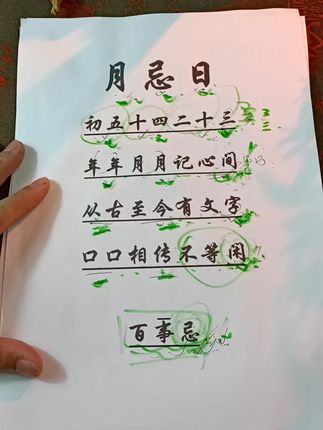 月忌日
初五十四二十三
年年月月记心间
从古至今有文字
口口相传不等闲
百事忌